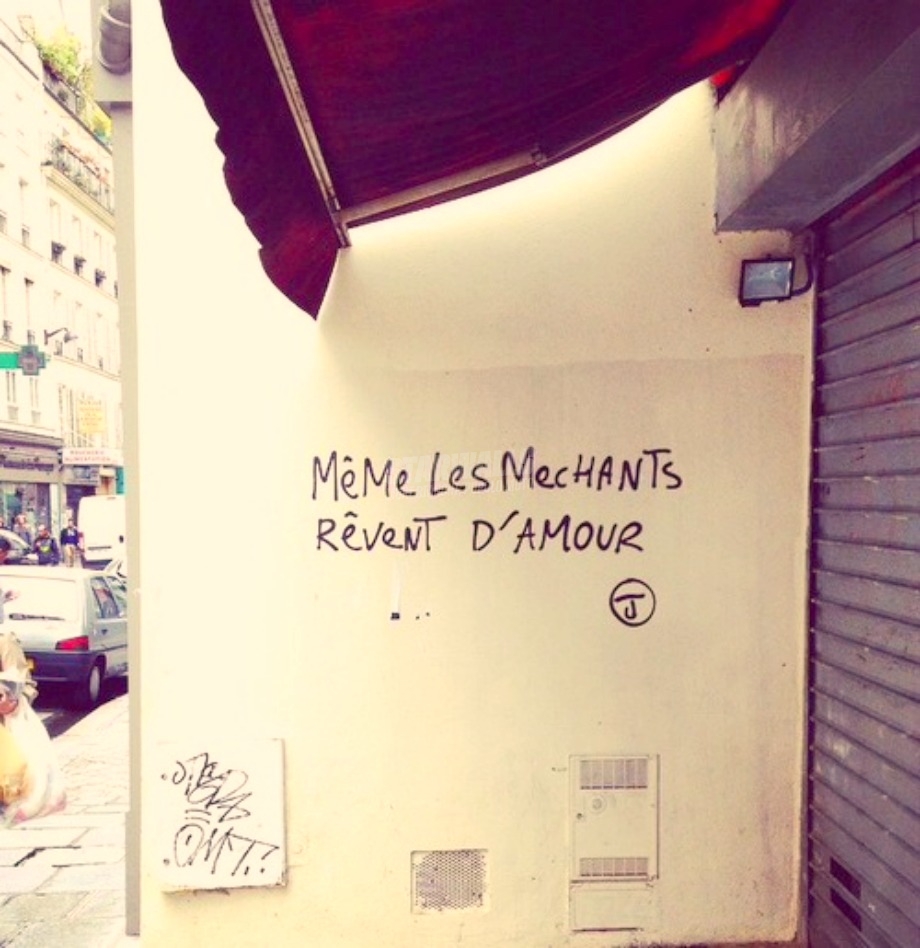 MêMe Les MecHANTs
RêveNT D'AMOUR
J